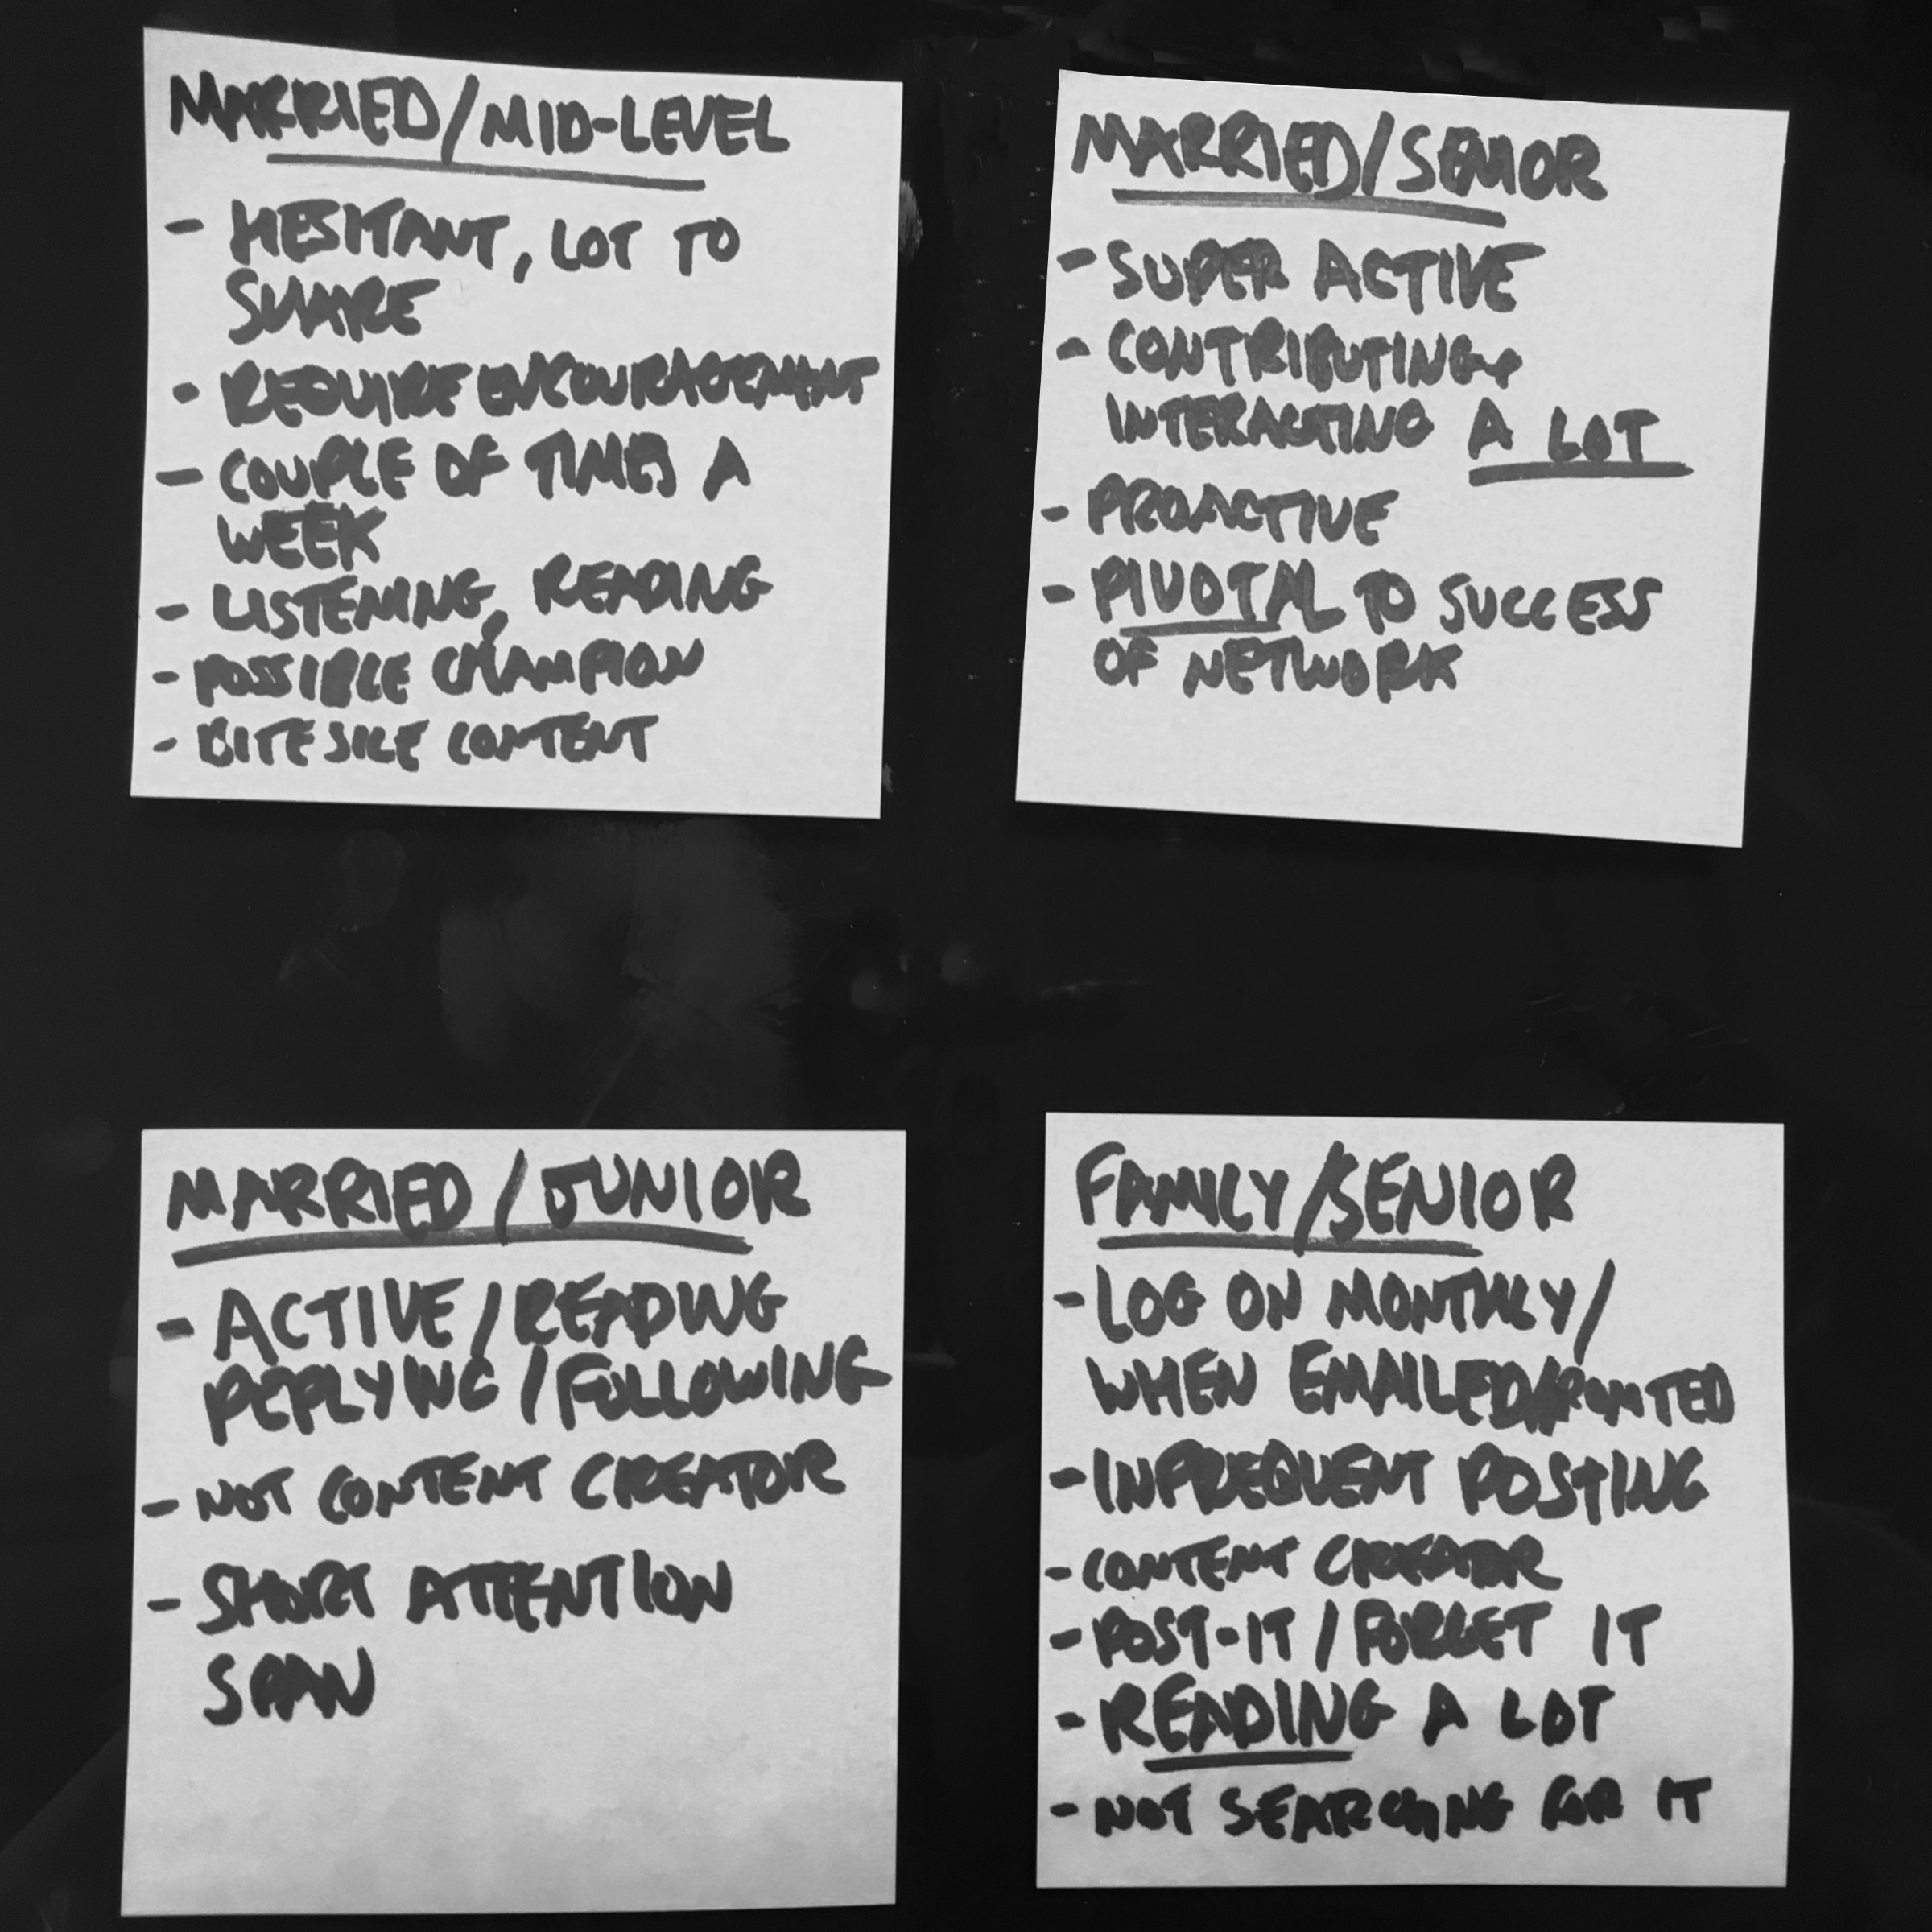 MARRIED/MID-LEVEL
- HESITANT, LOT TO
SHARE
- REQUIRE ENCOURAGEMENT
- COUPLE OF TIMES A
WEEK
- LISTENING, READING
- POSSIBLE CHAMPION
- BITE SIZE CONTENT
MARRIED/SENIOR
- SUPER ACTIVE
- CONTRIBUTING +
INTERACTING A LOT
- PROACTIVE
- PIVOTAL TO SUCCESS
OF NETWORK
MARRIED/JUNIOR
- ACTIVE/READING
REPLYING/FOLLOWING
- NOT CONTENT CREATOR
- SHORT ATTENTION
SPAN
FAMILY/SENIOR
- LOG ON MONTHLY/
WHEN EMAILED/
- INFREQUENT POSTING
- CONTENT CREATOR
- POST-IT/FORGET IT
- READING A LOT
- NOT SEARCHING FOR IT